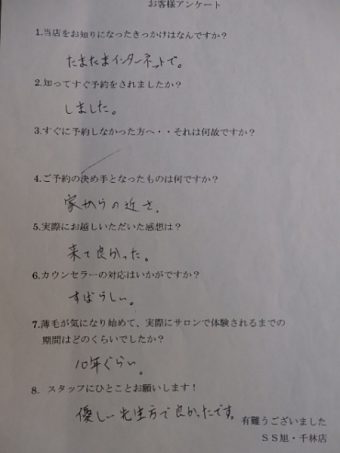 お客様アンケート
1.当店をお知りになったきっかけはなんですか？
たまたまインターネットで。
2.知ってすぐ予約をされましたか？
しました。
3.すぐに予約しなかった方へ・・それは何故ですか？
4.ご予約の決め手となったものは何ですか？
家からの近さ。
5.実際にお越しいただいた感想は？
来て良かった。
6.カウンセラーの対応はいかがですか？
すばらしい。
7.薄毛が気になり始めて、実際にサロンで体験されるまでの
期間はどのくらいでしたか？
10年ぐらい。
8. スタッフにひとことお願いします！
優しい先生方で良かったです。
有難うございました
ＳＳ旭・千林店